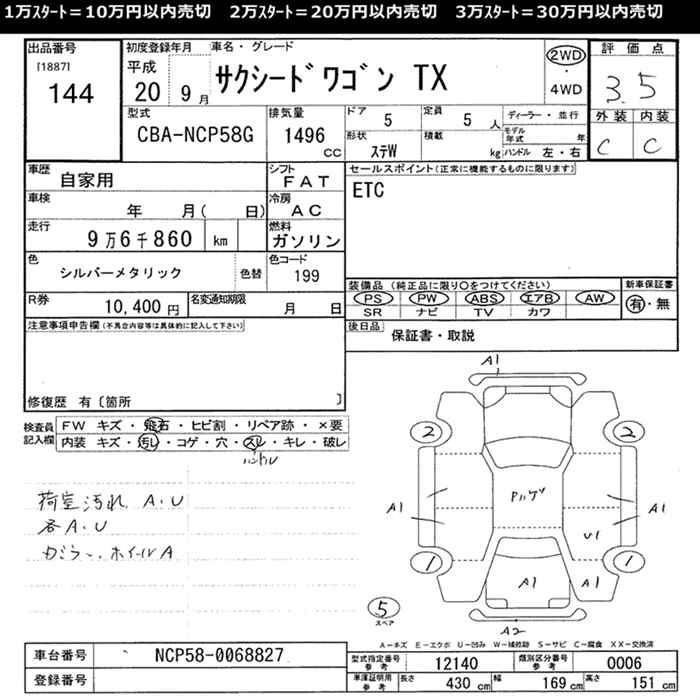 1万スタート=10万円以内売切　2万スタート=20万円以内売切　3万スタート=30万円以内売切
出品番号 [1887] 144
初度登録年月 平成 20 9月
車名・グレード サクシードワゴン TX
2WD・4WD
評価点 3.5
外装 C 内装 C
型式 CBA-NCP58G
排気量 1496 CC
ドア 5
定員 5 人
形状 ステW
積載 kg
ディーラー・並行
モデル年式 年
ハンドル 左・右
車歴 自家用
シフト FAT
車検 年 月( 日)
冷房 AC
走行 9万6千860 km
燃料 ガソリン
色 シルバーメタリック 色替
色コード 199
R券 10,400 円
名変通知期限 月 日
セールスポイント(正常に機能するものに限ります)
ETC
装備品 (純正品に限り○をつけてください)
PS PW ABS エアB AW
SR ナビ TV カワ
新車保証書 有・無
後日品 保証書・取説
注意事項申告欄(不具合内容等は具体的に記入して下さい)
修復歴 有〔箇所 〕
検査員記入欄
FW キズ・飛石・ヒビ割・リペア跡・×要
内装 キズ・汚レ・コゲ・穴・スレ・キレ・破レ
ハンドル
荷室汚れ A.U
各A.U
カミラー、ホイールA
A1
2 2
A1 A1
Pルゲ
U1
1 1
A1 A1
5 スペア
A2
A-キズ E-エクボ U-凹み W-補修跡 S-サビ C-腐食 XX-交換済
車台番号 NCP58-0068827
登録番号
型式指定番号 参考 12140
類別区分番号 参考 0006
車庫証明用 参考 長さ 430 cm 幅 169 cm 高さ 151 cm